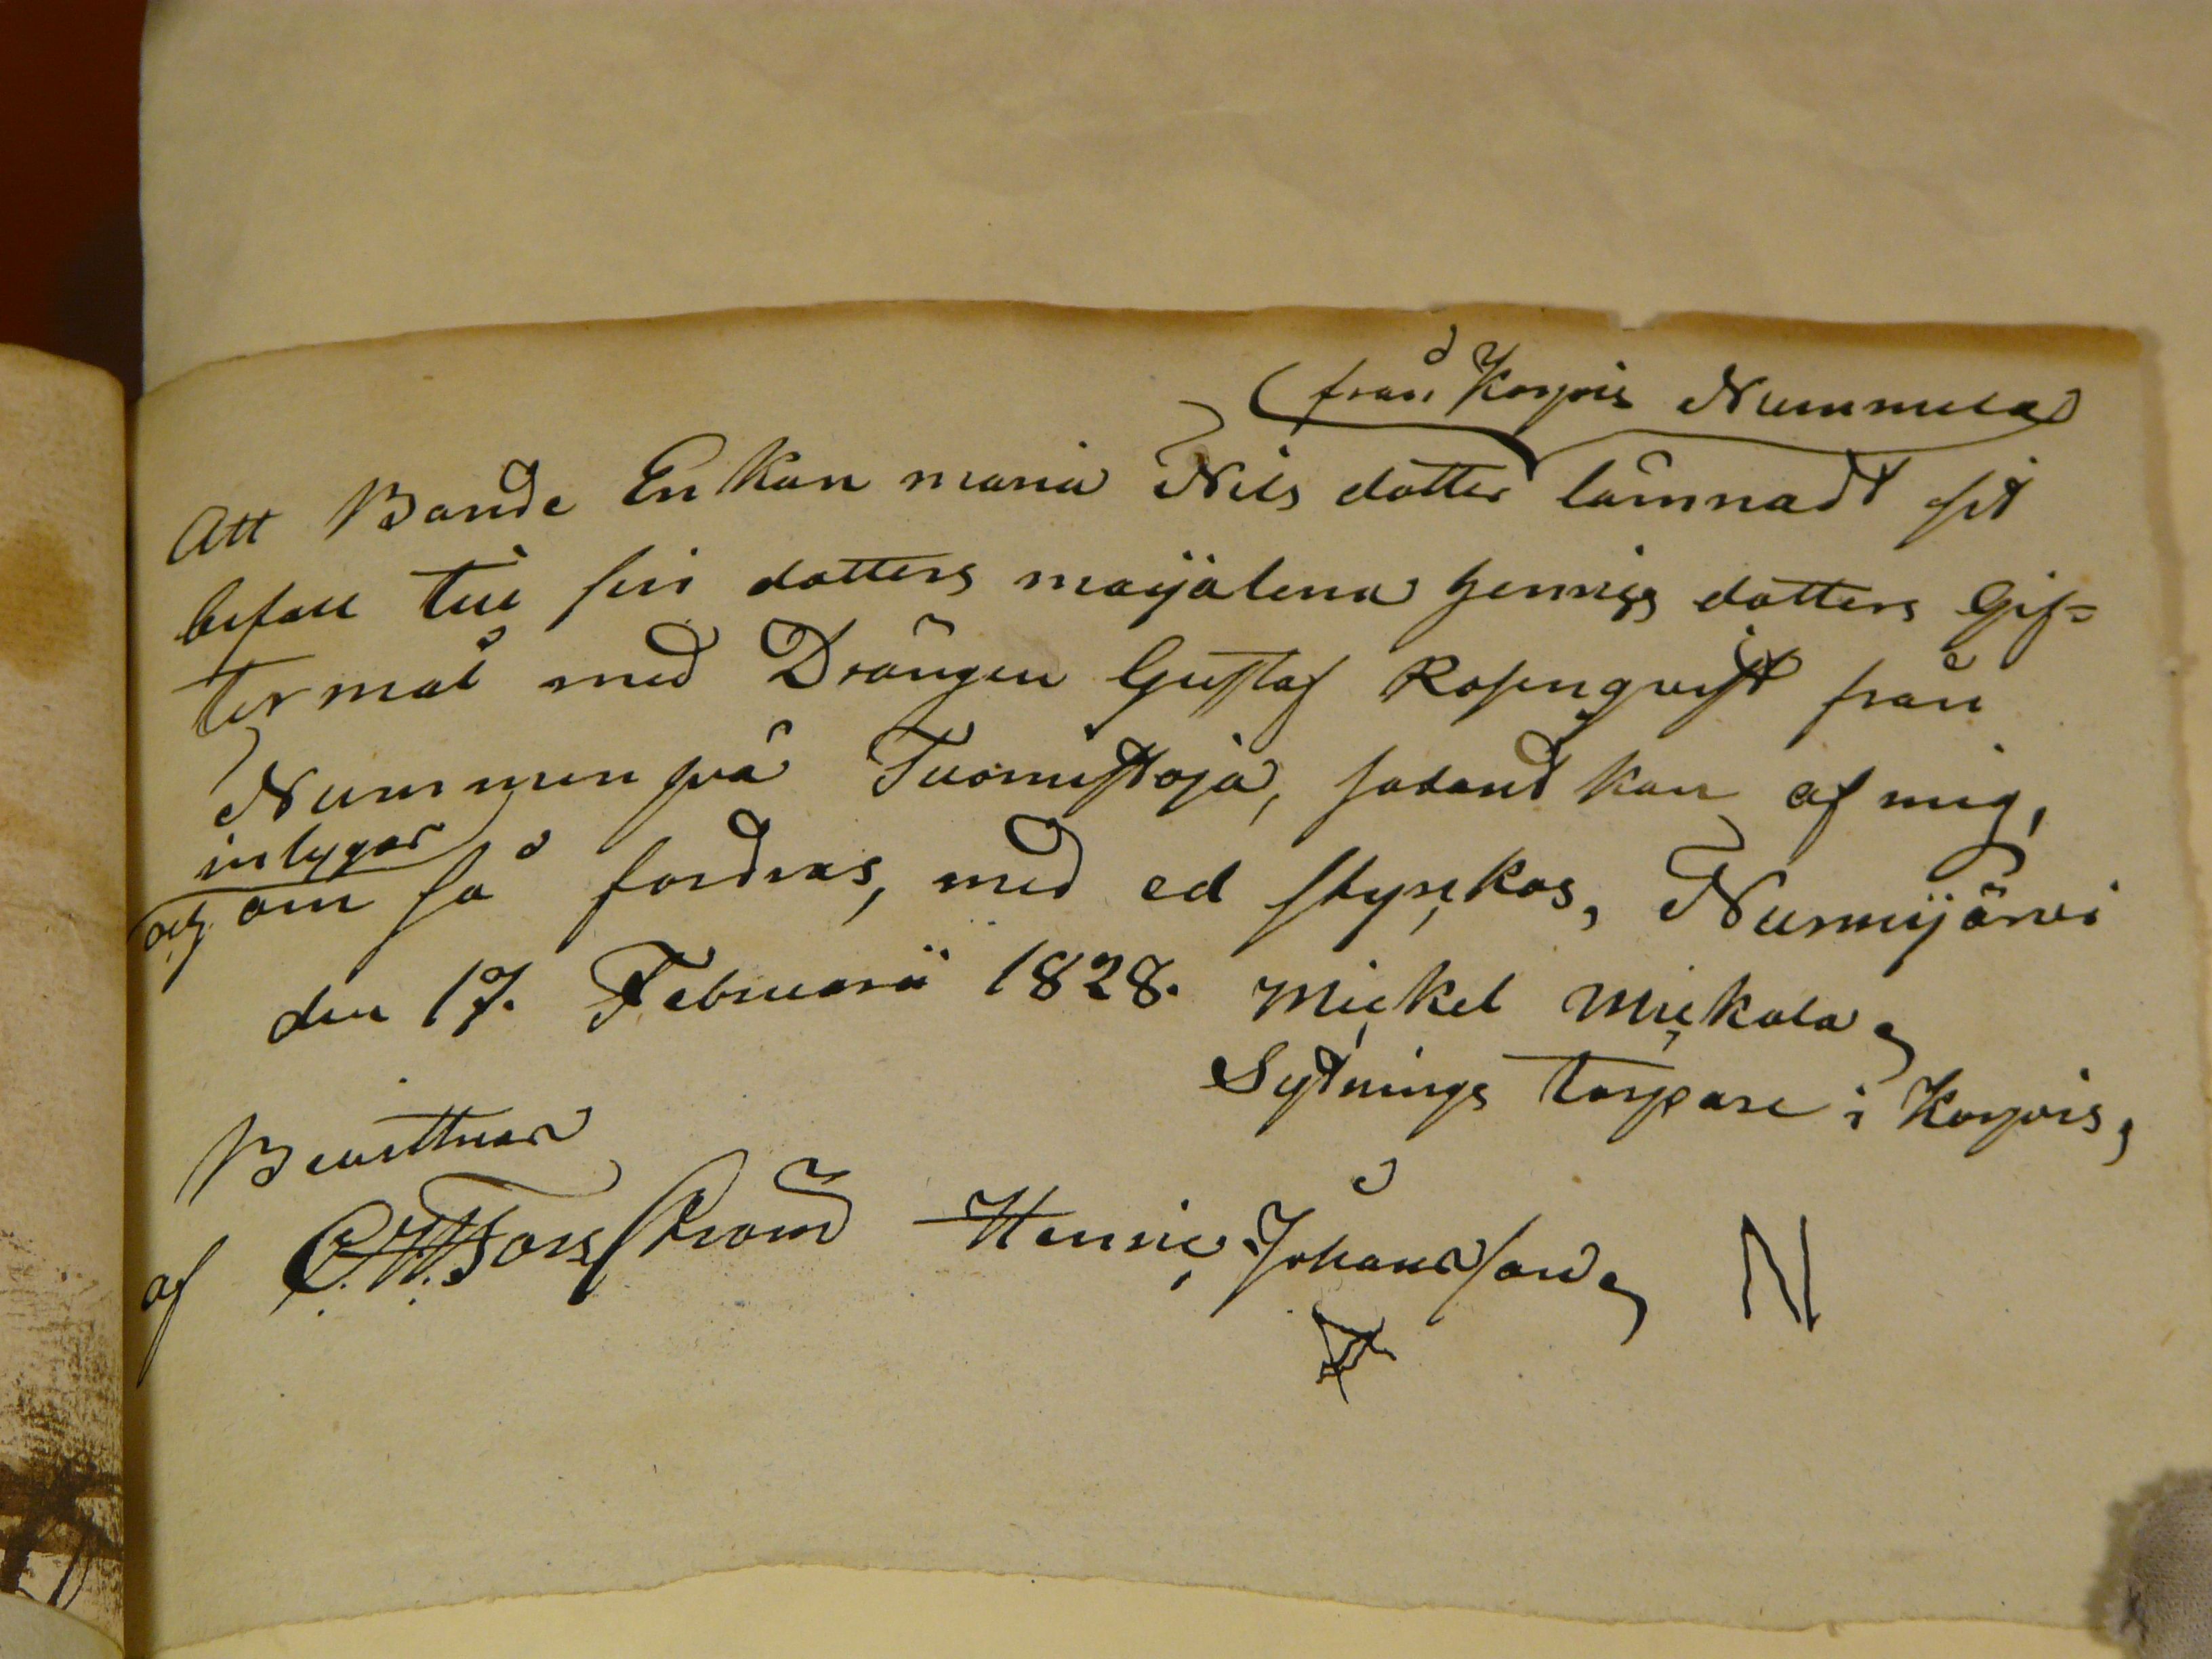 från Korpis Nummela
Att Bonde Enkan maria Nils dotter lämnadt sit
bifall till sin dotters majalena Henrics dotters Gif=
termål med Drängen Gustaf Rosenqvist från
Nummenpää Tuomistoja, sådant kan af mig,
intygas
och om så fordras, med ed styrkas, Nurmijärvi
den 17. Februarii 1828. Mickel Mickola
Sytnings torpare i Korpis,
Bewittnar
af C.W. Forsström Henric Johansson N